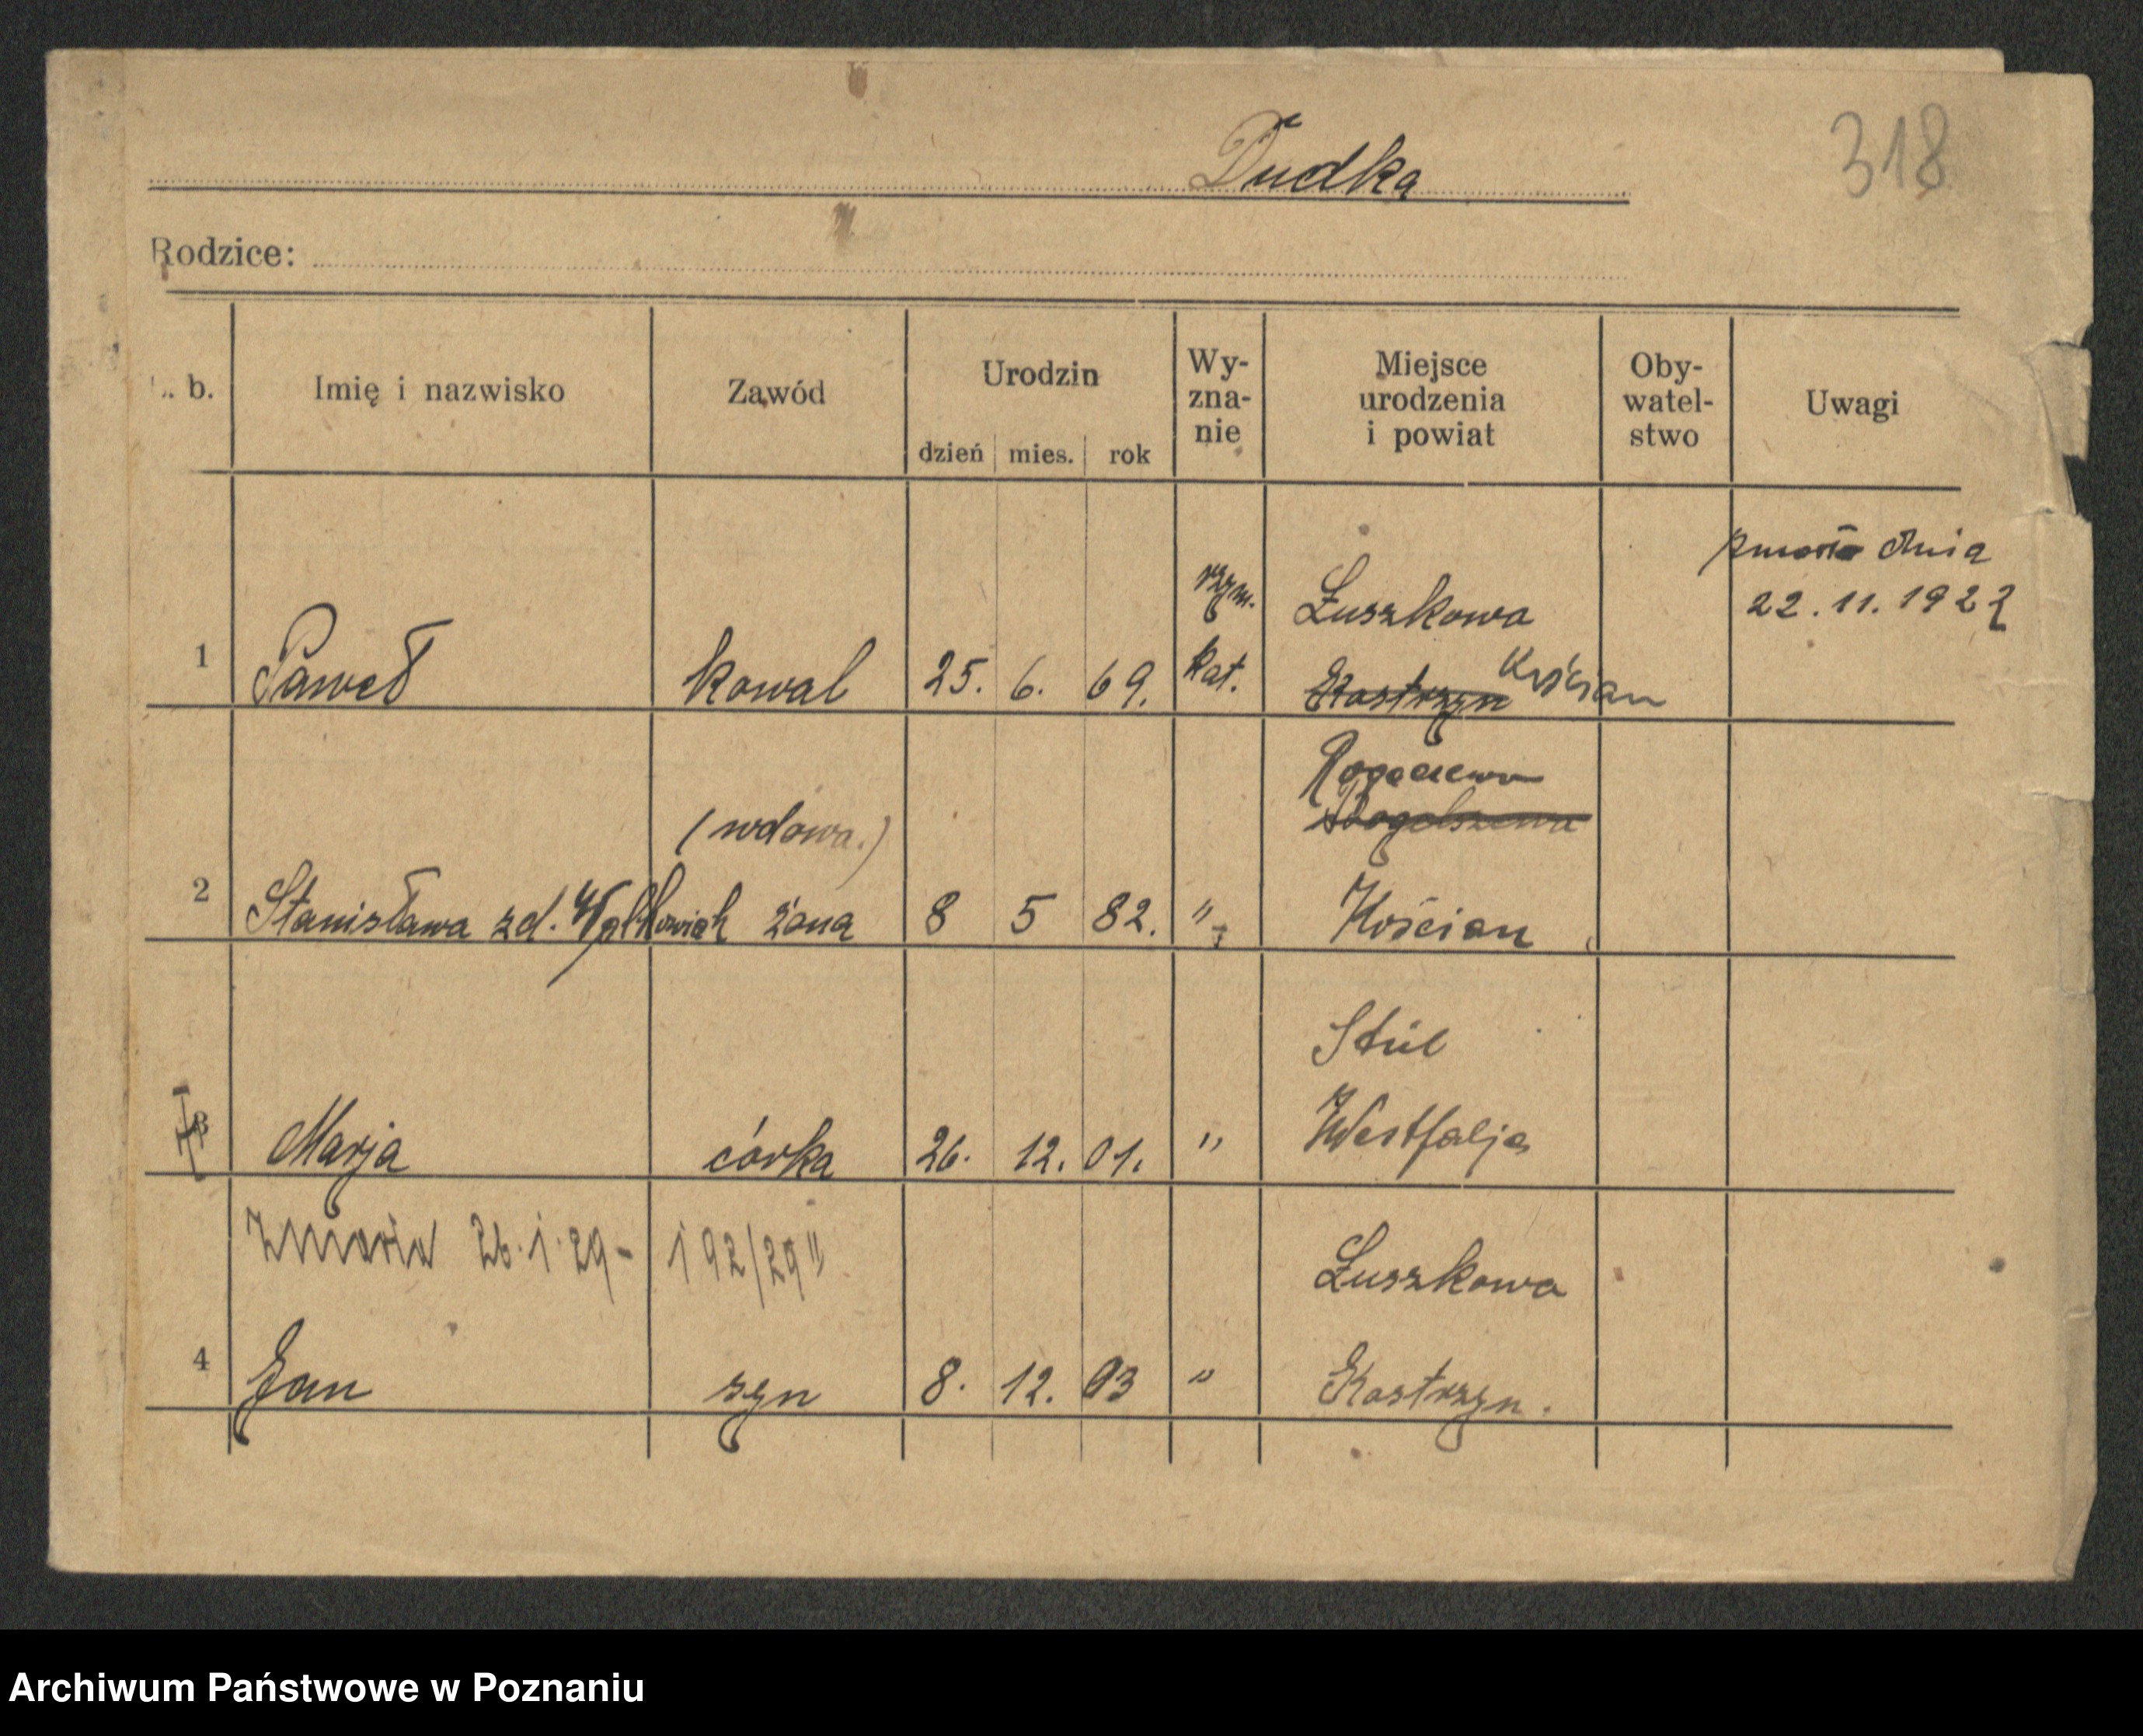 318
Dudka
Rodzice:
b. Imię i nazwisko Zawód Urodzin dzień mies. rok Wy-zna-nie Miejsce urodzenia i powiat Oby-watel-stwo Uwagi
zmarł dnia
22.11.1922
rzym. Łuszkowa
1 Paweł kowal 25. 6. 69. kat. Kostrzyn Kościan
(wdowa.)
2 Stanisława zd. żona 8 5 82. " Kościan
Westfalja
3 Marja córka 26. 12. 01. "
Zmarła 26.1.29 - 192/29"
Łuszkowa
4 Jan syn 8. 12. 03 " Kostrzyn.
Archiwum Państwowe w Poznaniu